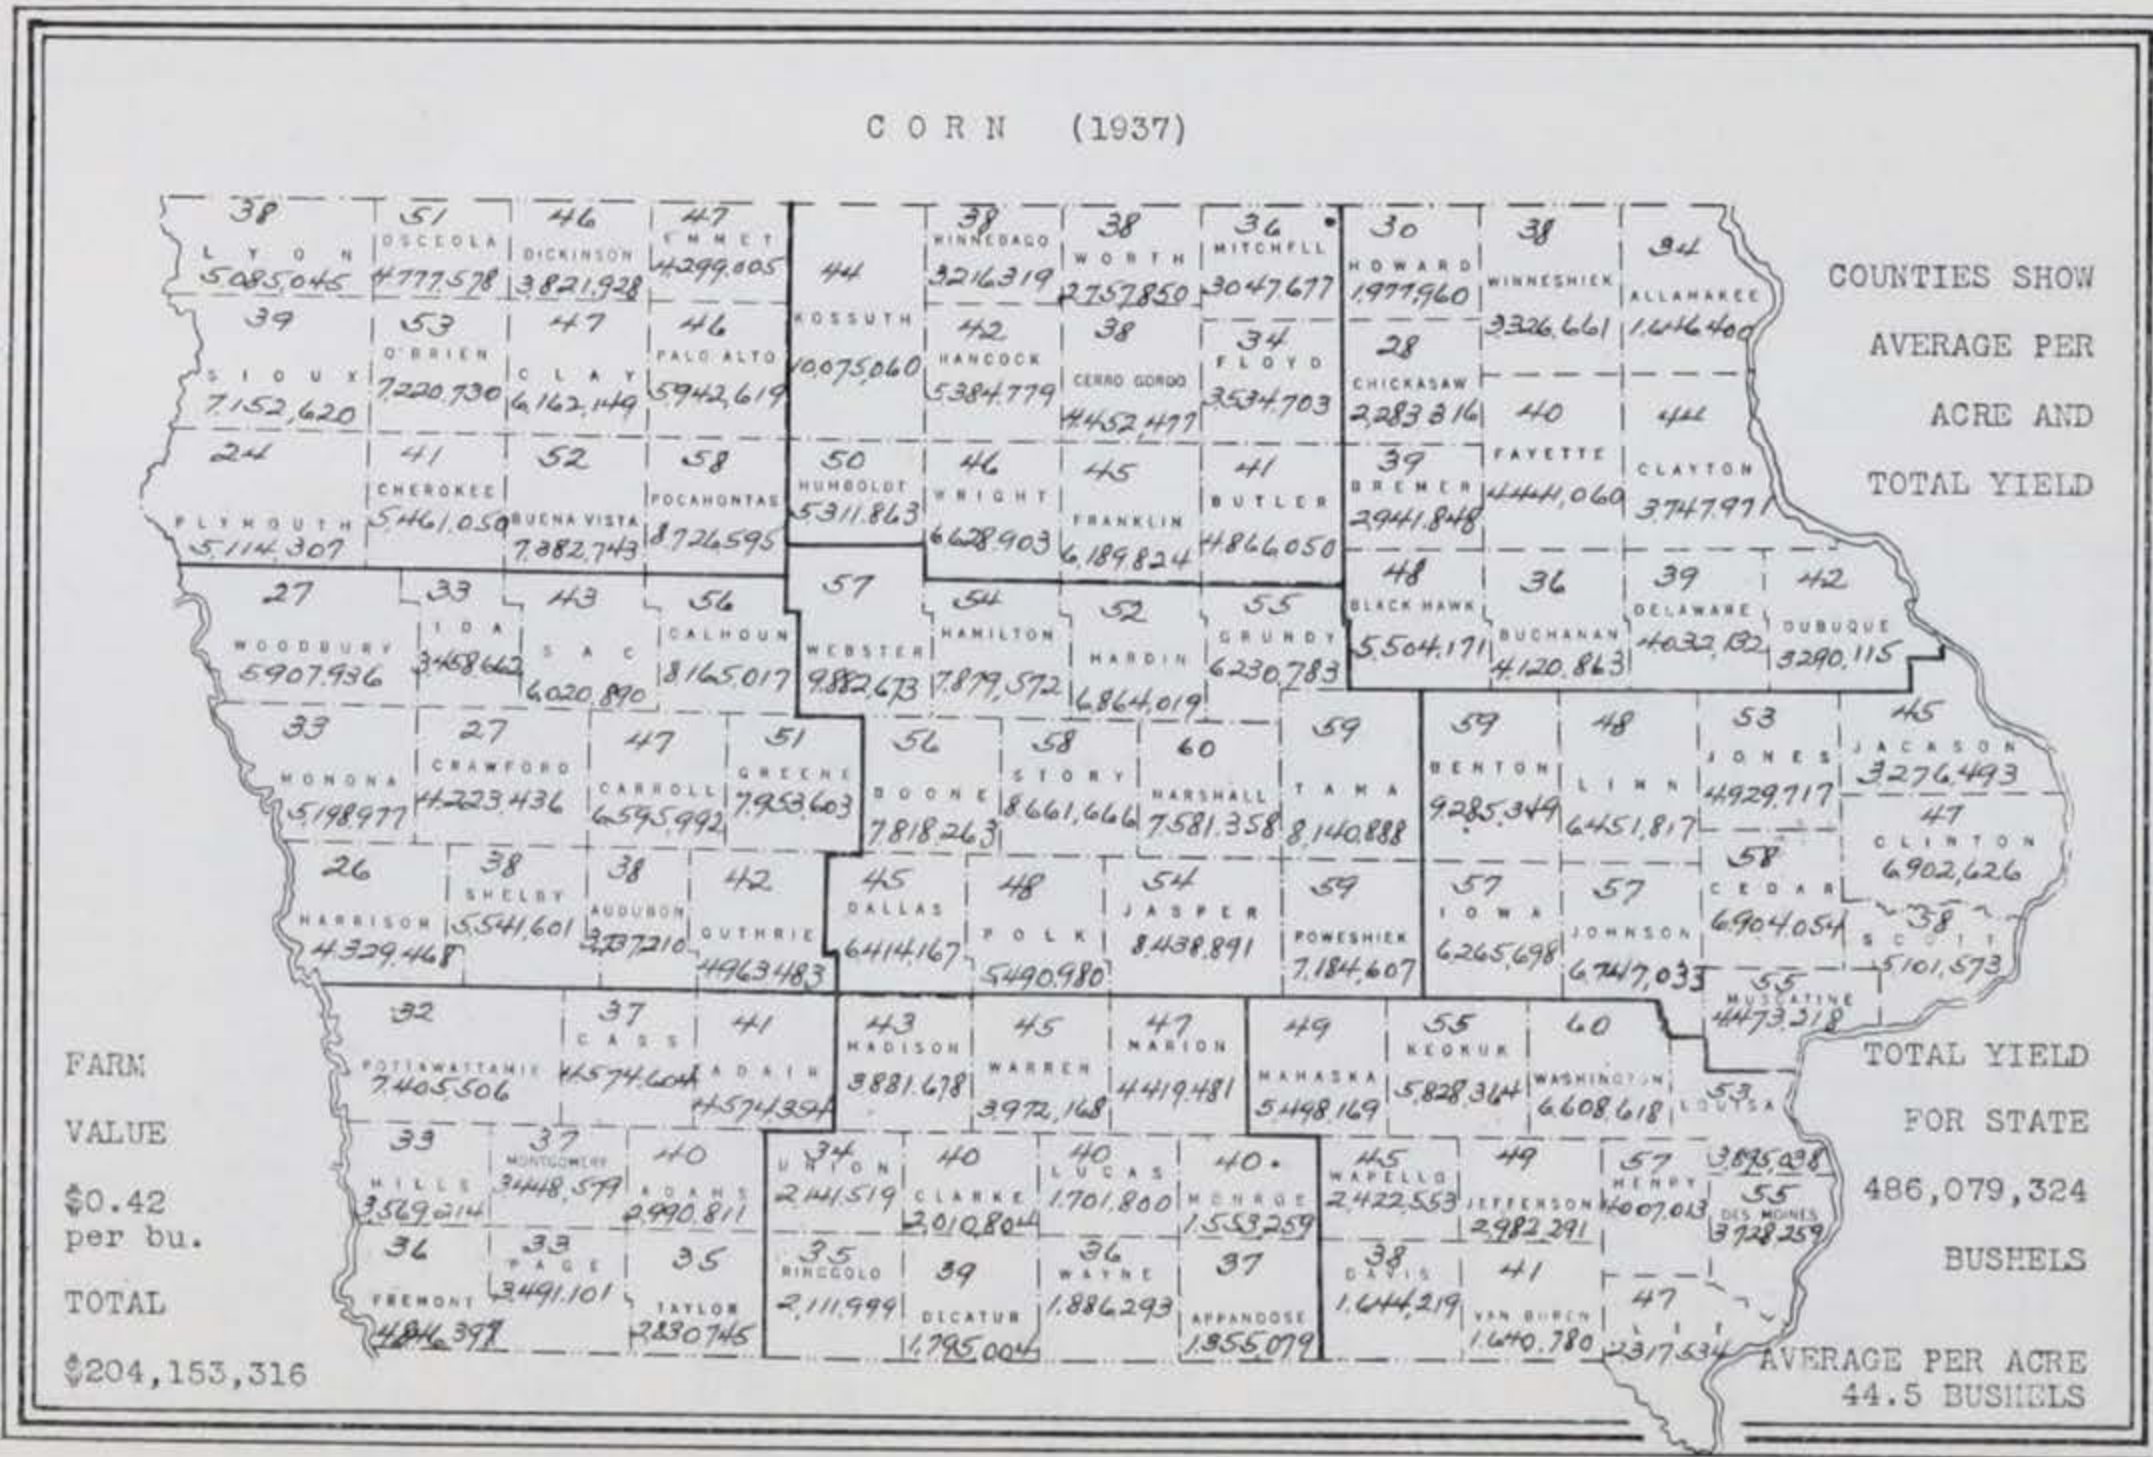 CORN (1937)
38
LYON
5,085,045
51
OSCEOLA
4,777,578
46
DICKINSON
3,821,928
47
EMMET
4,299,005
44
KOSSUTH
10,075,060
38
WINNEBAGO
3,216,319
38
WORTH
2,757,850
36
MITCHELL
3,047,677
30
HOWARD
1,977,960
38
WINNESHIEK
3,326,661
34
ALLAMAKEE
1,646,400
COUNTIES SHOW
AVERAGE PER
ACRE AND
TOTAL YIELD
39
SIOUX
7,152,620
53
O'BRIEN
7,220,730
47
CLAY
6,162,149
46
PALO ALTO
5,942,619
42
HANCOCK
5,384,779
38
CERRO GORDO
4,452,477
34
FLOYD
3,534,703
28
CHICKASAW
2,283,316
40
FAYETTE
4,441,060
44
CLAYTON
3,747,971
24
PLYMOUTH
5,114,307
41
CHEROKEE
5,461,050
52
BUENA VISTA
7,382,743
58
POCAHONTAS
8,726,595
50
HUMBOLDT
5,311,863
46
WRIGHT
6,628,903
45
FRANKLIN
6,189,824
41
BUTLER
4,866,050
39
BREMER
2,941,848
27
WOODBURY
5,907,936
33
IDA
3,458,662
43
SAC
6,020,890
56
CALHOUN
8,165,017
57
WEBSTER
9,882,673
54
HAMILTON
7,879,572
52
HARDIN
6,864,019
55
GRUNDY
6,230,783
48
BLACK HAWK
5,504,171
36
BUCHANAN
4,120,863
39
DELAWARE
4,032,132
42
DUBUQUE
3,290,115
33
MONONA
5,198,977
27
CRAWFORD
4,223,436
47
CARROLL
6,595,992
51
GREENE
7,953,603
56
BOONE
7,818,263
58
STORY
8,661,666
60
MARSHALL
7,581,358
59
TAMA
8,140,888
59
BENTON
9,285,349
48
LINN
6,451,817
53
JONES
4,929,717
45
JACKSON
3,276,493
47
CLINTON
6,902,626
26
HARRISON
4,329,468
38
SHELBY
5,541,601
38
AUDUBON
3,737,210
42
GUTHRIE
4,963,483
45
DALLAS
6,414,167
48
POLK
5,490,980
54
JASPER
8,438,891
59
POWESHIEK
7,184,607
57
IOWA
6,265,698
57
JOHNSON
6,747,033
58
CEDAR
6,904,054
58
SCOTT
5,101,573
55
MUSCATINE
4,473,218
32
POTTAWATTAMIE
7,405,506
37
CASS
4,574,604
41
ADAIR
4,574,394
43
MADISON
3,881,678
45
WARREN
3,972,168
47
MARION
4,419,481
49
MAHASKA
5,498,169
55
KEOKUK
5,828,364
60
WASHINGTON
6,608,618
53
LOUISA
3,895,038
33
MILLS
3,569,214
37
MONTGOMERY
3,448,579
40
ADAMS
2,990,811
34
UNION
2,141,519
40
CLARKE
2,010,804
40
LUCAS
1,701,800
40
MONROE
1,553,259
45
WAPELLO
2,422,553
49
JEFFERSON
2,982,291
57
HENRY
4,007,013
55
DES MOINES
3,728,259
36
FREMONT
4,846,397
33
PAGE
3,491,101
35
TAYLOR
2,830,745
35
RINGGOLD
2,111,999
39
DECATUR
1,795,004
36
WAYNE
1,886,293
37
APPANOOSE
1,355,079
38
DAVIS
1,644,219
41
VAN BUREN
1,640,780
47
LEE
2,317,534
FARM
VALUE
$0.42
per bu.
TOTAL
$204,153,316
TOTAL YIELD
FOR STATE
486,079,324
BUSHELS
AVERAGE PER ACRE
44.5 BUSHELS